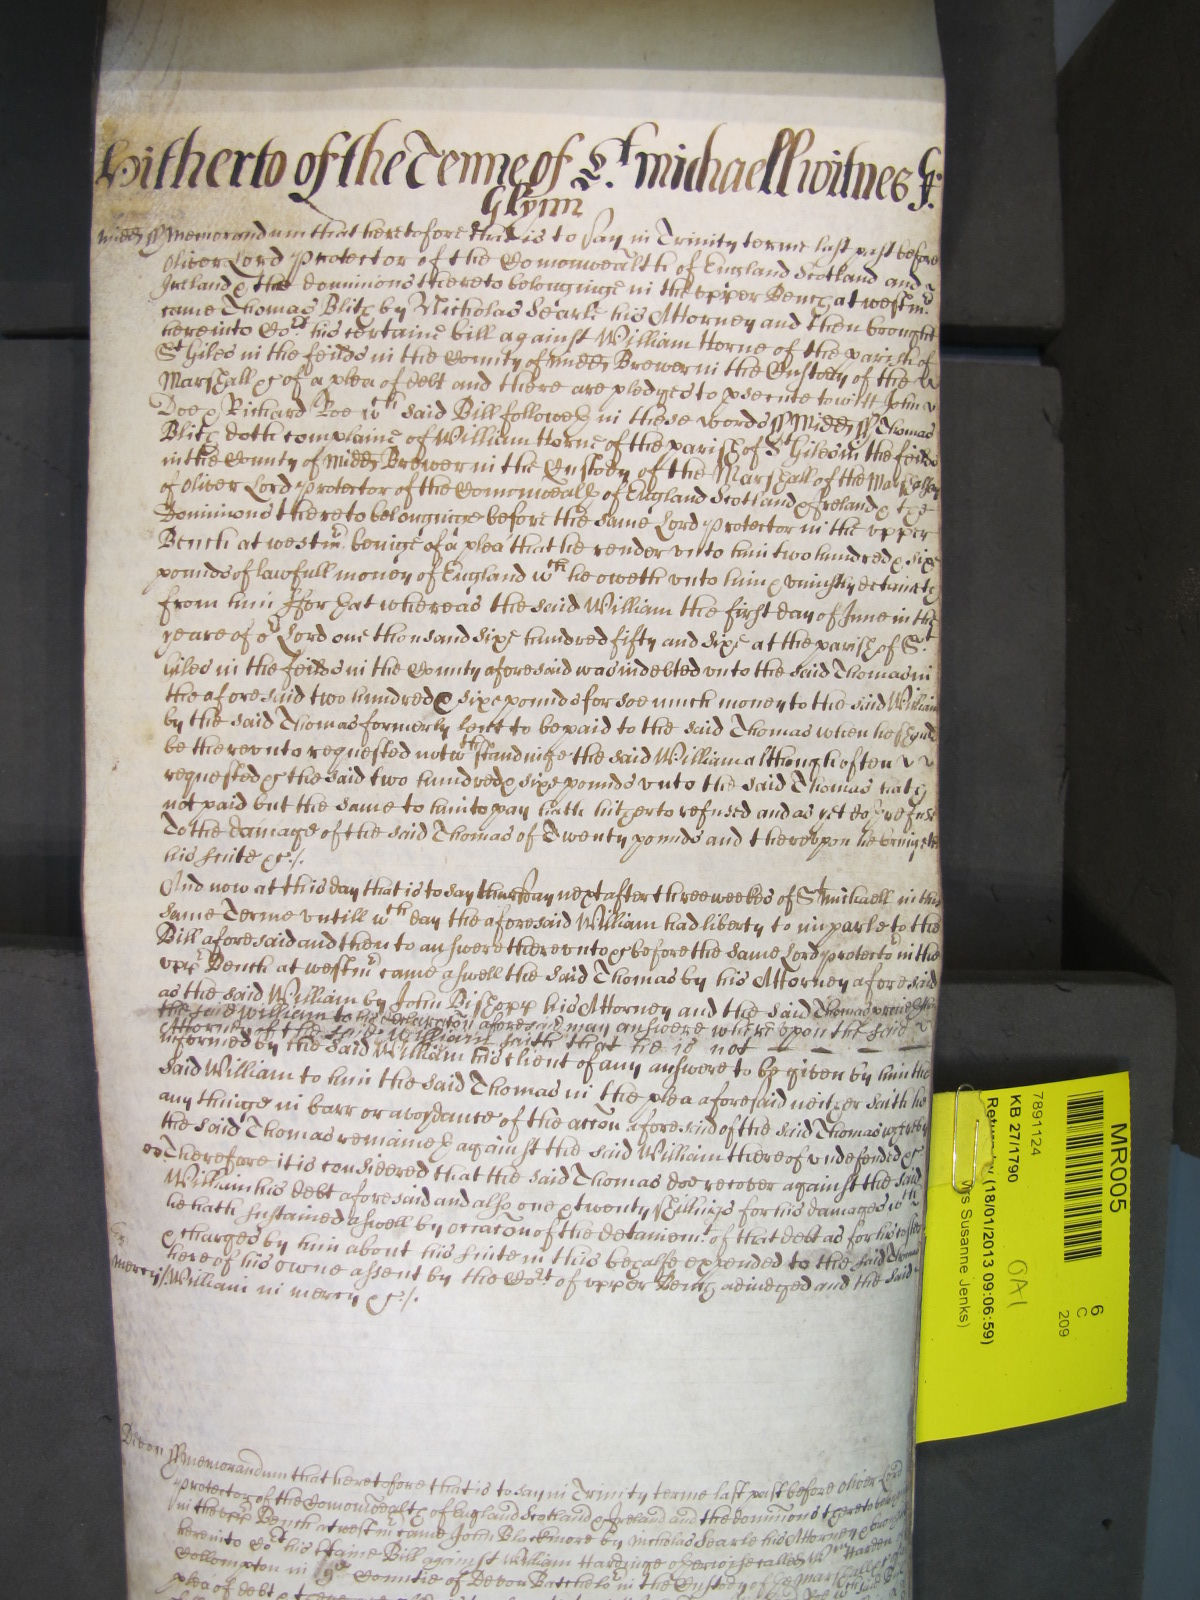 Hitherto of the Terme of St. Michaell witnes J:
Glynn
Midds ss Memorandum that heretofore that is to say in Trinity terme last past before
Oliver Lord Protector of the Comonwealth of England Scotland and
Ireland & the dominions thereto belonginge in the upper Bench at westmr.
came Thomas Blitz by Nicholas Searle his Attorney and then brought
here into Cort. his certaine bill against William Horne of the parish of
St Giles in the feilds in the County of Midds Brewer in the Custody of the
Marshall &c of a plea of debt and there are pledges to psecute towitt John
Doe & Richard Roe wch said Bill followeth in these words ss Midds ss Thomas
Blitz doth complaine of William Horne of the parish of St Giles in the feilds
in the County of Midds Brewer in the Custody of the Marshall of the Marshalsey
of Oliver Lord Protector of the Comonwealth of England Scotland & Ireland & the
Dominions thereto belonginge before the same Lord Protector in the upper
Bench at westmr. beinge of a plea that he render unto him two hundred & sixe
pounds of lawfull money of England wch he oweth unto him & uniustly deteineth
from him ffor that whereas the said William the first day of June in the
yeare of or Lord one thousand sixe hundred fifty and sixe at the parish of St
Giles in the feilds in the County aforesaid was indebted unto the said Thomas in
the aforesaid two hundred & sixe pounds for soe much money to the said William
by the said Thomas formerly lent to be paid to the said Thomas when he should
be thereunto requested notwthstandinge the said William although often
requested &c the said two hundred & sixe pounds unto the said Thomas hath
not paid but the same to him to pay hath hitherto refused and as yet doth refuse
To the damage of the said Thomas of Twenty pounds and thereupon he bringeth
his suite &c./.
And now at this day that is to say thursday next after three weekes of St Michaell in this
same Terme untill wch day the aforesaid William had liberty to imparle to the
Bill aforesaid and then to answere thereunto &c before the same Lord Protector in the
uppr Bench at westmr came aswell the said Thomas by his Attorney aforesaid
as the said William by John Bishopp his Attorney and the said Thomas
the said William to his declaracon aforesaid may answere whereupon the said
Attorney of the said William saith that he is not
informed by the said William his client of any answere to be given by him the
said William to him the said Thomas in the plea aforesaid neither saith he
any thinge in barr or avoydance of the accon aforesaid of the said Thomas whereby
the said Thomas remaineth against the said William thereof undefended &c
Therefore it is considered that the said Thomas doe recover against the said
William his debt aforesaid and also one & twenty shillings for his damages wch
he hath sustained aswell by occacon of the detainemt. of that debt as for his costes
& charges by him about his suite in this behalfe expended to the said Thomas
here of his owne assent by the Cort of upper Bench adiudged and the said
mercy/ William in mercy &c./.
Devon ss Memorandum that heretofore that is to say in Trinity terme last past before Oliver Lord
Protector of the Comonwealth of England Scotland & Ireland and the dominions thereto belonginge
in the uppr Bench at westmr came John Blackmore by Nicholas Searle his Attorney & brought
here into Cort his ctaine Bill against William Hardinge otherwise called Wm Harden
Collompton in Countie of Devon Batchelor in the Custody of the Marshall &c of a
plea of debt &
MR005
7891124
KB 27/1790
Return by (18/01/2013 09:06:59)
Mrs Susanne Jenks)
OA1
6
C
209